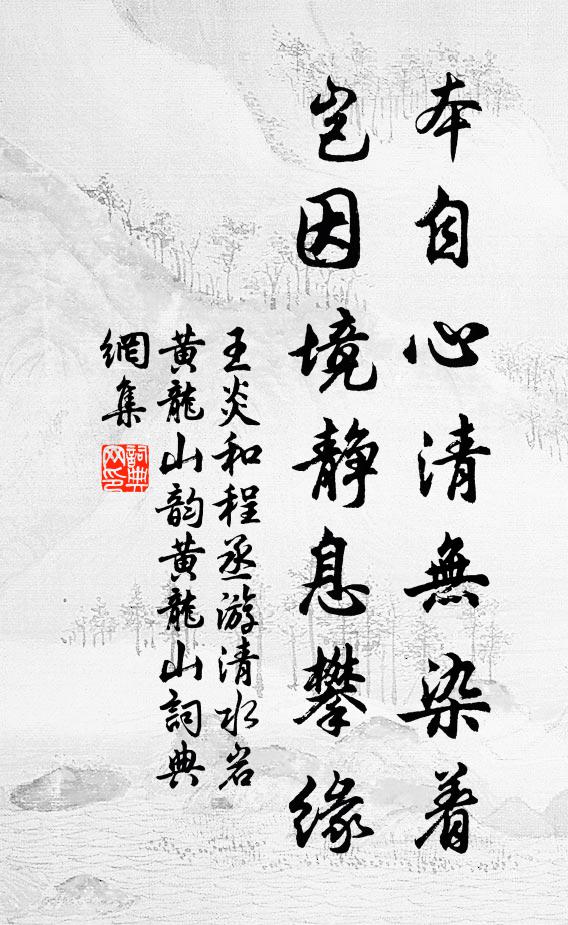 本自心清無染着
岂因境靜息攀緣
王炎和程丞游清水岩
黄龍山韵黄龍山詞典
網集
詞典
网印